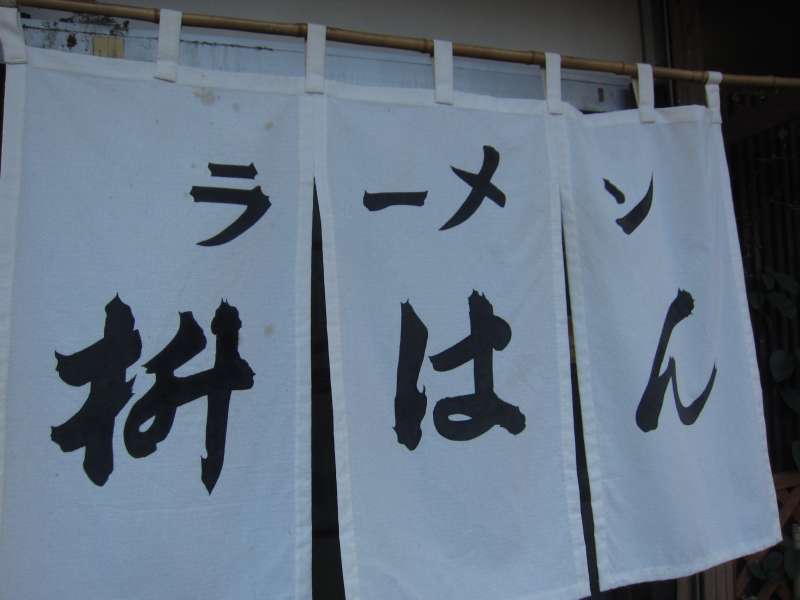 ラーメン
枡はん